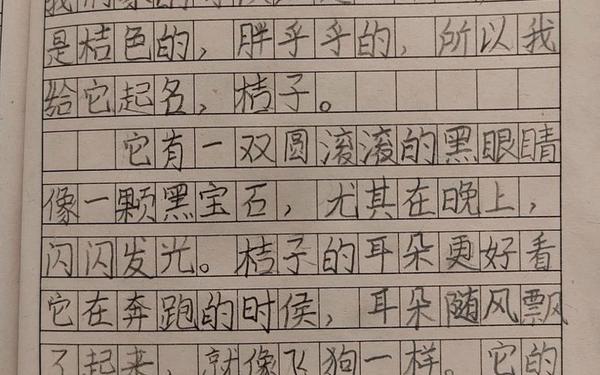 是桔色的，胖乎乎的，所以我
给它起名，桔子。
它有一双圆滚滚的黑眼睛
像一颗黑宝石，尤其在晚上，
闪闪发光。桔子的耳朵更好看
它在奔跑的时侯，耳朵随风飘
了起来，就像飞狗一样。它的